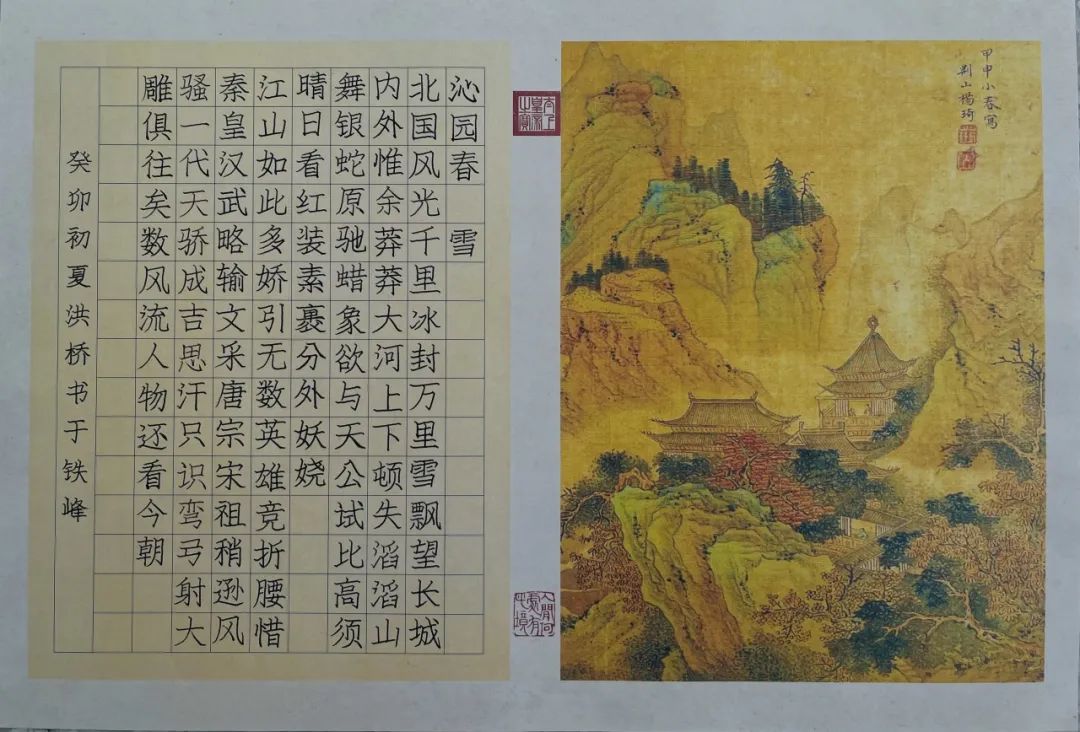 沁园春 雪
北国风光千里冰封万里雪飘望长城
内外惟余莽莽大河上下顿失滔滔山
舞银蛇原驰蜡象欲与天公试比高须
晴日看红装素裹分外妖娆
江山如此多娇引无数英雄竞折腰惜
秦皇汉武略输文采唐宗宋祖稍逊风
骚一代天骄成吉思汗只识弯弓射大
雕俱往矣数风流人物还看今朝
癸卯初夏洪桥书于铁峰
太上
皇帝
之寶
甲申小春寫
荆山楊琦